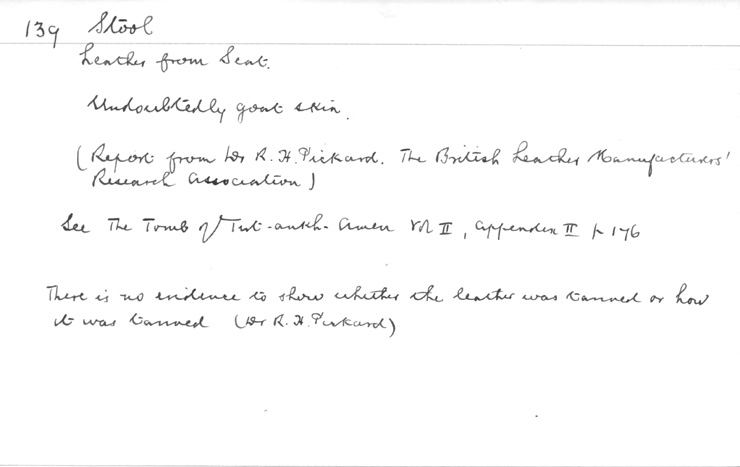 139 Stool
Leather from Seat.
Undoubtedly goat skin.
(Report from Dr R. H. Pickard. The British Leather Manufacturers'
Research Association)
See The Tomb of Tut-ankh-Amen Vol II, Appendix II p 176
There is no evidence to show whether the leather was tanned or how
it was tanned (Dr R. H. Pickard)